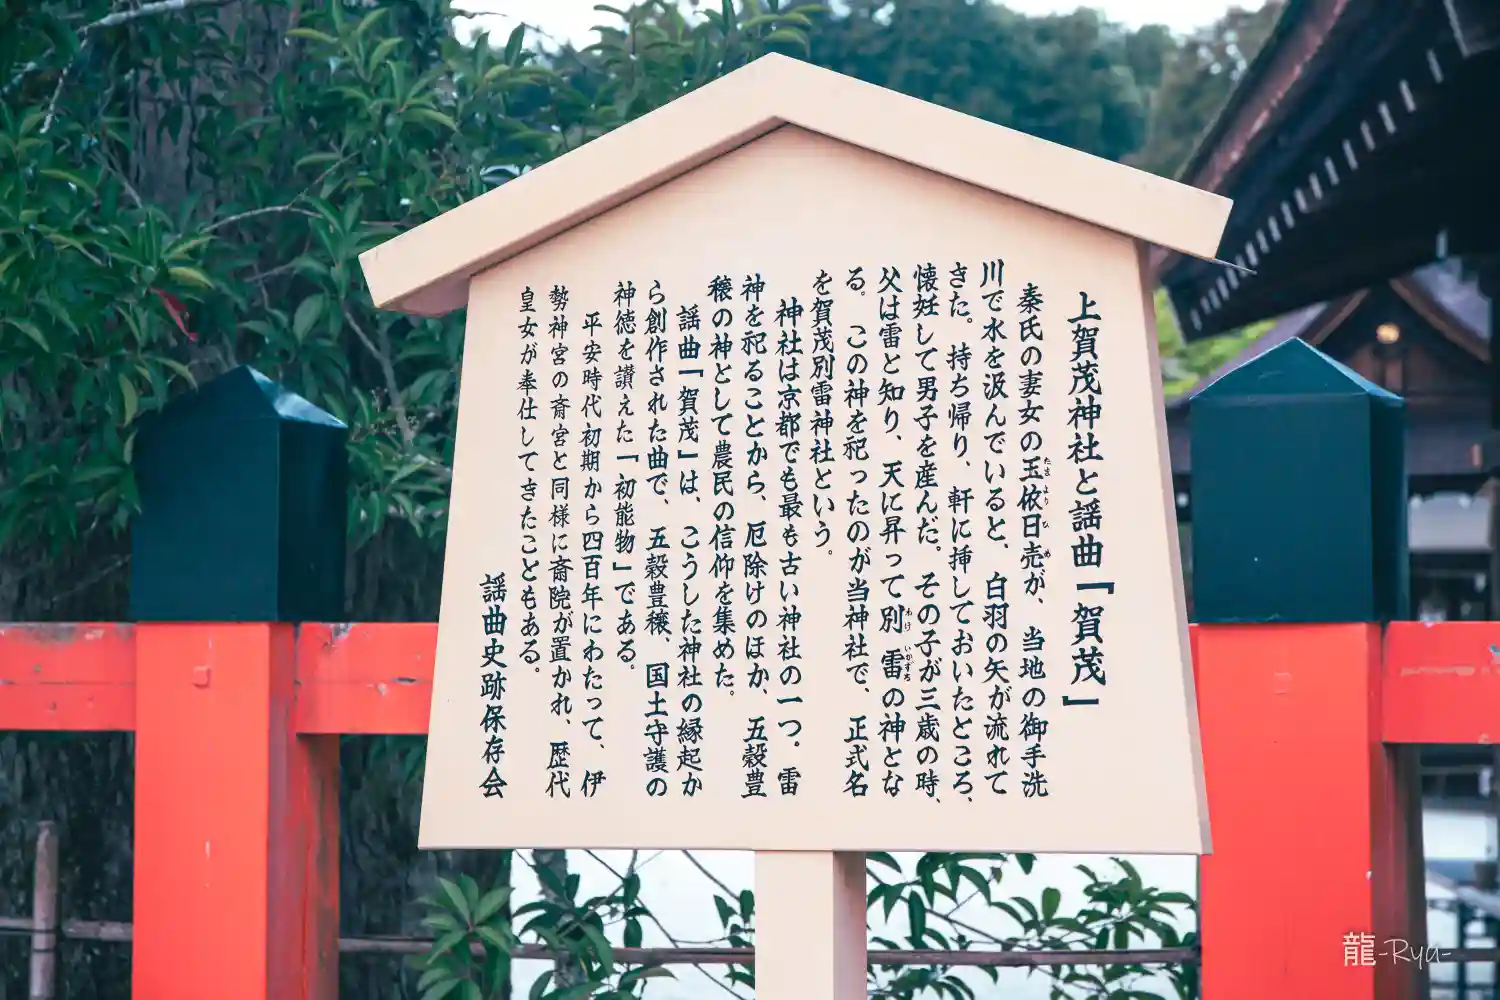 上賀茂神社と謡曲「賀茂」
秦氏の妻女の玉依日売が、当地の御手洗
たま より ひ め
川で水を汲んでいると、白羽の矢が流れて
きた。持ち帰り、軒に挿しておいたところ、
懐妊して男子を産んだ。その子が三歳の時、
父は雷と知り、天に昇って別雷の神とな
わけ いかずち
る。この神を祀ったのが当神社で、正式名
を賀茂別雷神社という。
神社は京都でも最も古い神社の一つ。雷
神を祀ることから、厄除けのほか、五穀豊
穣の神として農民の信仰を集めた。
謡曲「賀茂」は、こうした神社の縁起か
ら創作された曲で、五穀豊穣、国土守護の
神徳を讃えた「初能物」である。
平安時代初期から四百年にわたって、伊
勢神宮の斎宮と同様に斎院が置かれ、歴代
皇女が奉仕してきたこともある。
謡曲史跡保存会
龍-Rya-